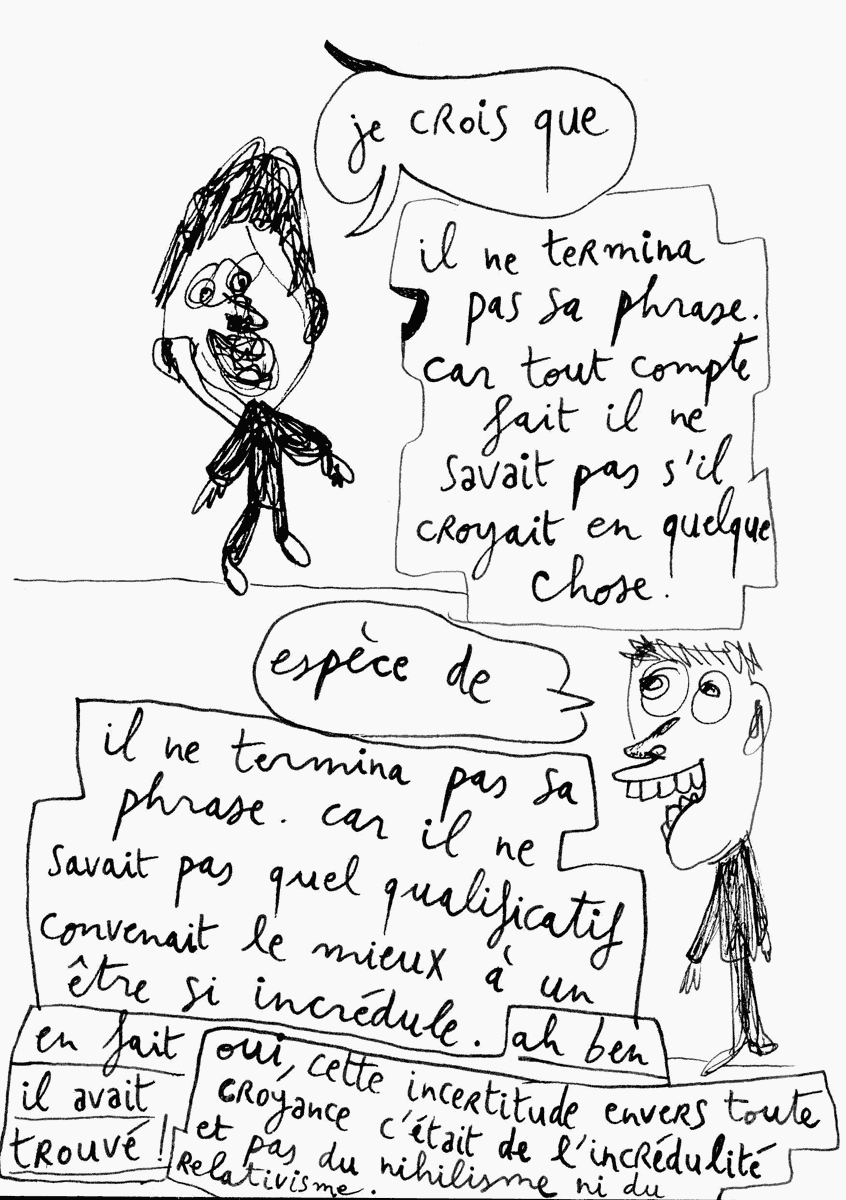 je CRois que
il ne teRmina
pas sa phrase.
car tout compte
fait il ne
savait pas s'il
CRoyait en quelque
chose.
espèce de
il ne termina pas sa
phrase. car il ne
savait pas quel qualificatif
convenait le mieux à un
être si incrédule.
en fait
il avait
tRouvé !
ah ben
oui, cette incertitude enveRs toute
CRoyance c'était de l'incRédulité
et pas du nihilisme ni du
Relativisme.